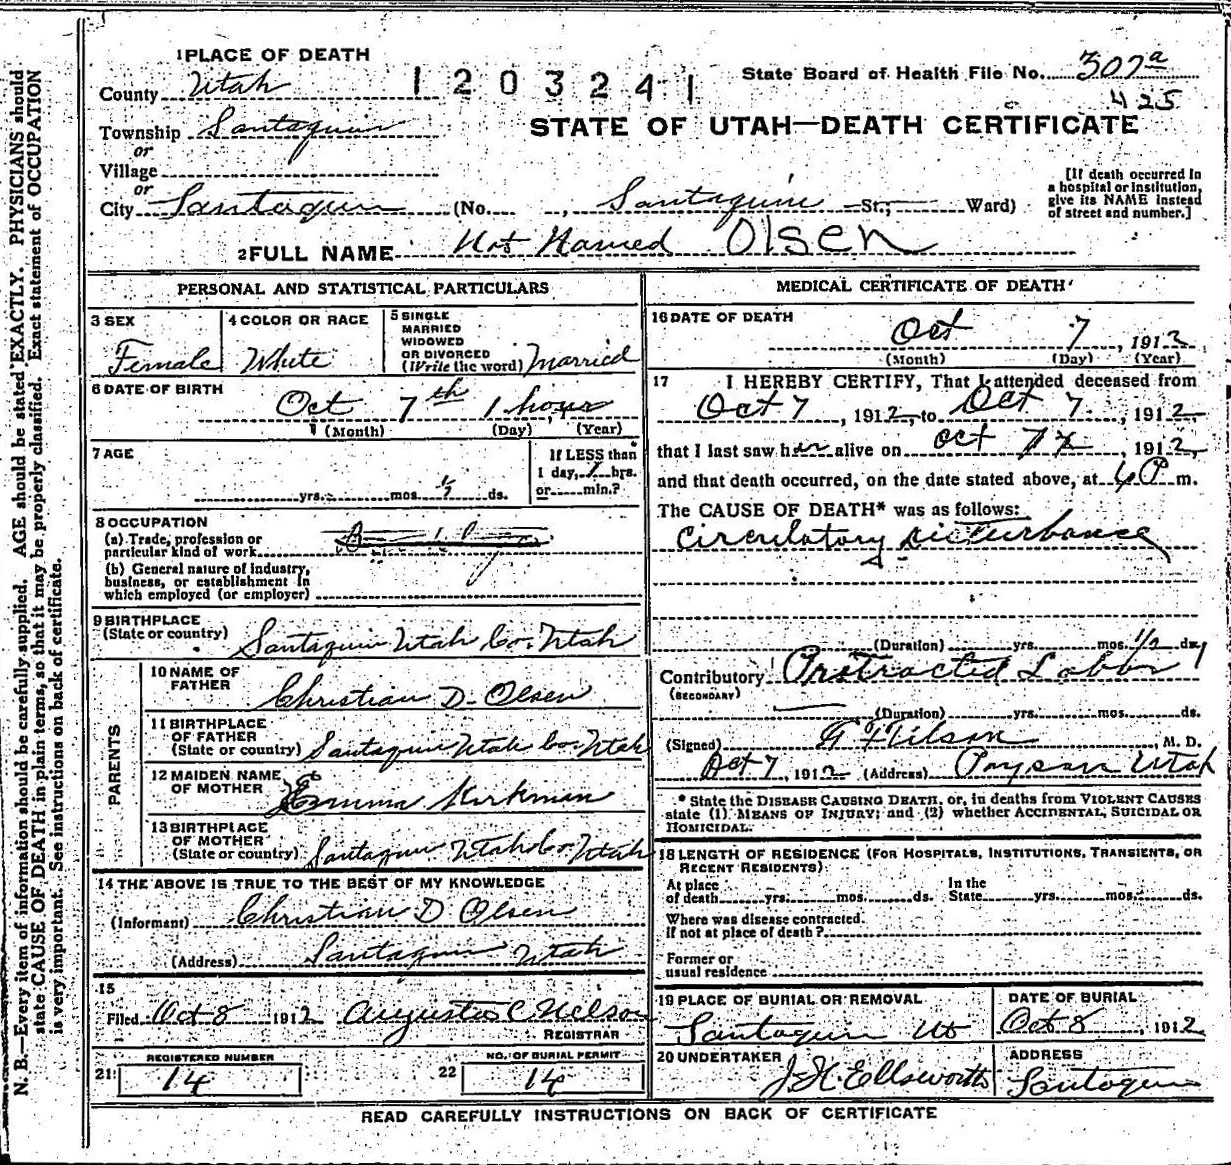 1 PLACE OF DEATH
County Utah
1203241
State Board of Health File No. 307a
425
Township Santaquin
or
Village
or
STATE OF UTAH—DEATH CERTIFICATE
City Santaquin (No. , Santaquin St.; Ward)
[If death occurred in
a hospital or institution,
give its NAME instead
of street and number.]
2 FULL NAME Not Named Olsen
PERSONAL AND STATISTICAL PARTICULARS
3 SEX
Female
4 COLOR OR RACE
White
5 SINGLE
MARRIED
WIDOWED
OR DIVORCED
(Write the word) Married
6 DATE OF BIRTH
Oct 7th 1 hour
(Month) (Day) (Year)
7 AGE
yrs. mos. ds.
If LESS than
1 day, 1 hrs.
or min.?
8 OCCUPATION
(a) Trade, profession or
particular kind of work
(b) General nature of industry,
business, or establishment in
which employed (or employer)
9 BIRTHPLACE
(State or country) Santaquin Utah Co. Utah
PARENTS
10 NAME OF
FATHER
Christian D. Olsen
11 BIRTHPLACE
OF FATHER
(State or country) Santaquin Utah Co. Utah
12 MAIDEN NAME
OF MOTHER
Emma Kirkman
13 BIRTHPLACE
OF MOTHER
(State or country) Santaquin Utah Co Utah
14 THE ABOVE IS TRUE TO THE BEST OF MY KNOWLEDGE
(Informant) Christian D Olsen
(Address) Santaquin Utah
15
Filed Oct 8 1912 Augustas C Nelson
REGISTRAR
REGISTERED NUMBER
21: 14
NO. OF BURIAL PERMIT
22 14
MEDICAL CERTIFICATE OF DEATH
16 DATE OF DEATH
Oct 7, 1912
(Month) (Day) (Year)
17 I HEREBY CERTIFY, That I attended deceased from
Oct 7, 1912, to Oct 7, 1912
that I last saw her alive on Oct 7, 1912,
and that death occurred, on the date stated above, at 6 P m.
The CAUSE OF DEATH* was as follows:
Circulatory Disturbance
(Duration) yrs. mos. 1/2 ds.
Contributory Protracted Labor
(SECONDARY)
(Duration) yrs. mos. ds.
(Signed) , M. D.
Oct 7, 1912 (Address) Payson Utah
* State the DISEASE CAUSING DEATH, or, in deaths from VIOLENT CAUSES
state (1) MEANS OF INJURY; and (2) whether ACCIDENTAL, SUICIDAL OR
HOMICIDAL.
18 LENGTH OF RESIDENCE (FOR HOSPITALS, INSTITUTIONS, TRANSIENTS, OR
RECENT RESIDENTS)
At place
of death yrs. mos. ds.
In the
State yrs. mos. ds.
Where was disease contracted.
If not at place of death?
Former or
usual residence
19 PLACE OF BURIAL OR REMOVAL
Santaquin Ut
DATE OF BURIAL
Oct 8, 1912
20 UNDERTAKER
J. H. Ellsworth
ADDRESS
Santaquin
READ CAREFULLY INSTRUCTIONS ON BACK OF CERTIFICATE
N. B.—Every item of information should be carefully supplied. AGE should be stated EXACTLY. PHYSICIANS should
state CAUSE OF DEATH in plain terms, so that it may be properly classified. Exact statement of OCCUPATION
is very important. See instructions on back of certificate.